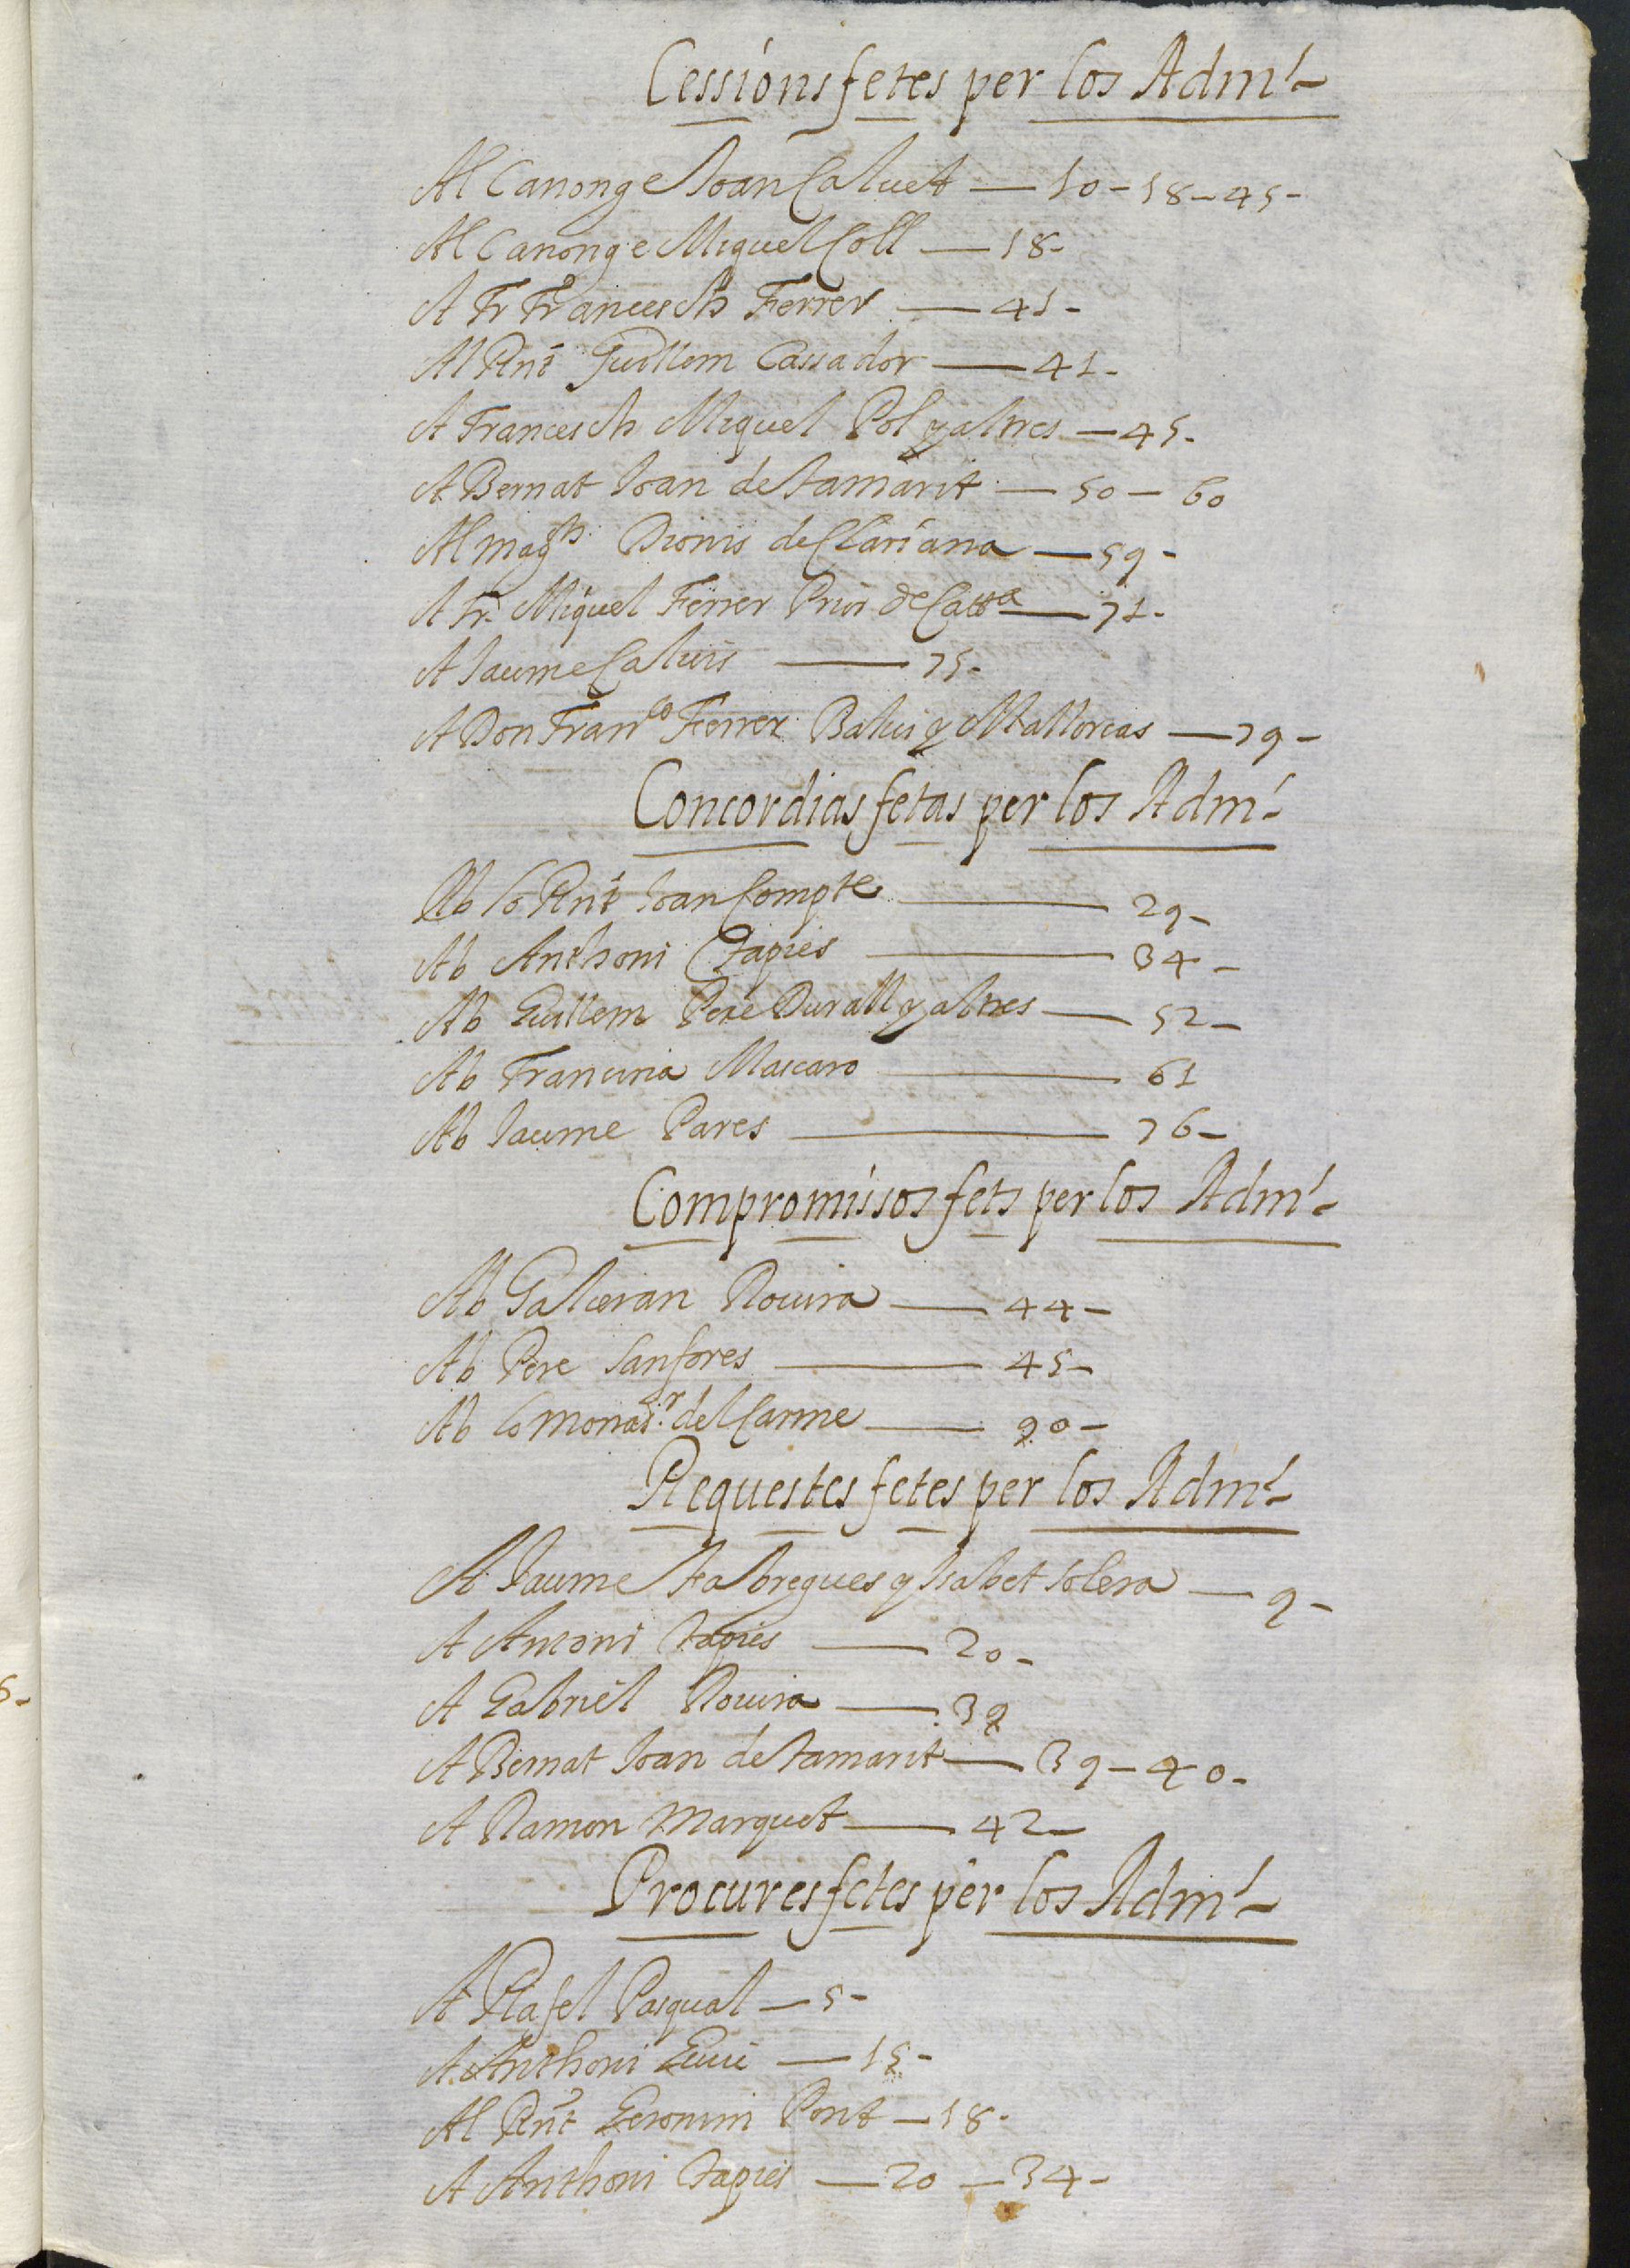 Cessions fetes per los Adm.
Al Canonge Joan Calvet — 10 – 18 – 45 –
Al Canonge Miquel Coll — 18 –
A Fr Francesch Ferrer — 41 –
Al Rnt Guillem Cassador — 41 –
A Francesch Miquel Pol y altres — 45 –
A Bernat Joan de Tamarit — 50 – 60
Al magch Dionis de Clariana — 59 –
A Fr. Miquel Ferrer Prior de Catta — 71 –
A Jaume Calvis — 75 –
A Don Franco Ferrer Baliu y Mallorcas — 79 –
Concordias fetas per los Adm.
Ab lo Rnt Joan Compte — 29 –
Ab Anthoni Tapies — 34 –
Ab Guillem Pere Durall y altres — 52 –
Ab Francina Mascaro — 61
Ab Jaume Pares — 76 –
Compromissos fets per los Adm.
Ab Galceran Rovira — 44 –
Ab Pere Sanfores — 45 –
Ab lo monast.r del Carme — 90 –
Requestes fetes per los Adm.
A Jaume Fabregues y Isabet Solera — 9 –
A Antoni Tapies — 20 –
A Gabriel Rovira — 39
A Bernat Joan de Tamarit — 39 – 40 –
A Ramon Marquet — 42 –
Procures fetes per los Adm.
A Rafel Pasqual — 5 –
A Anthoni — 15 –
Al Rnt Geronim Pont — 18 –
A Anthoni Tapies — 20 – 34 –